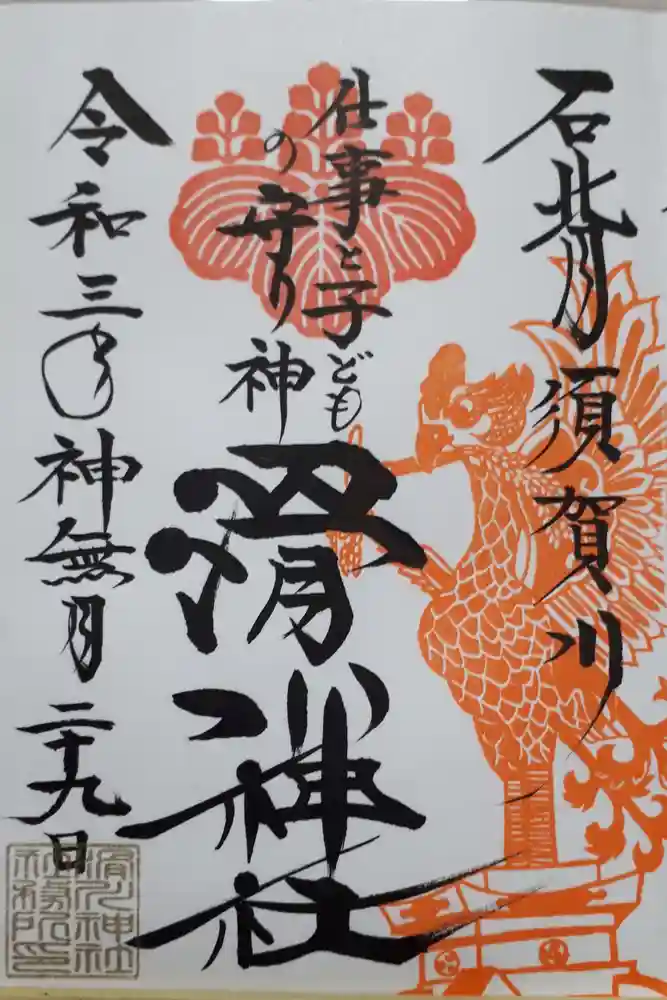 石背 須賀川
仕事と子ども
の守り神
滑川神社
令和三年神無月二十九日
滑川神社
社務所印